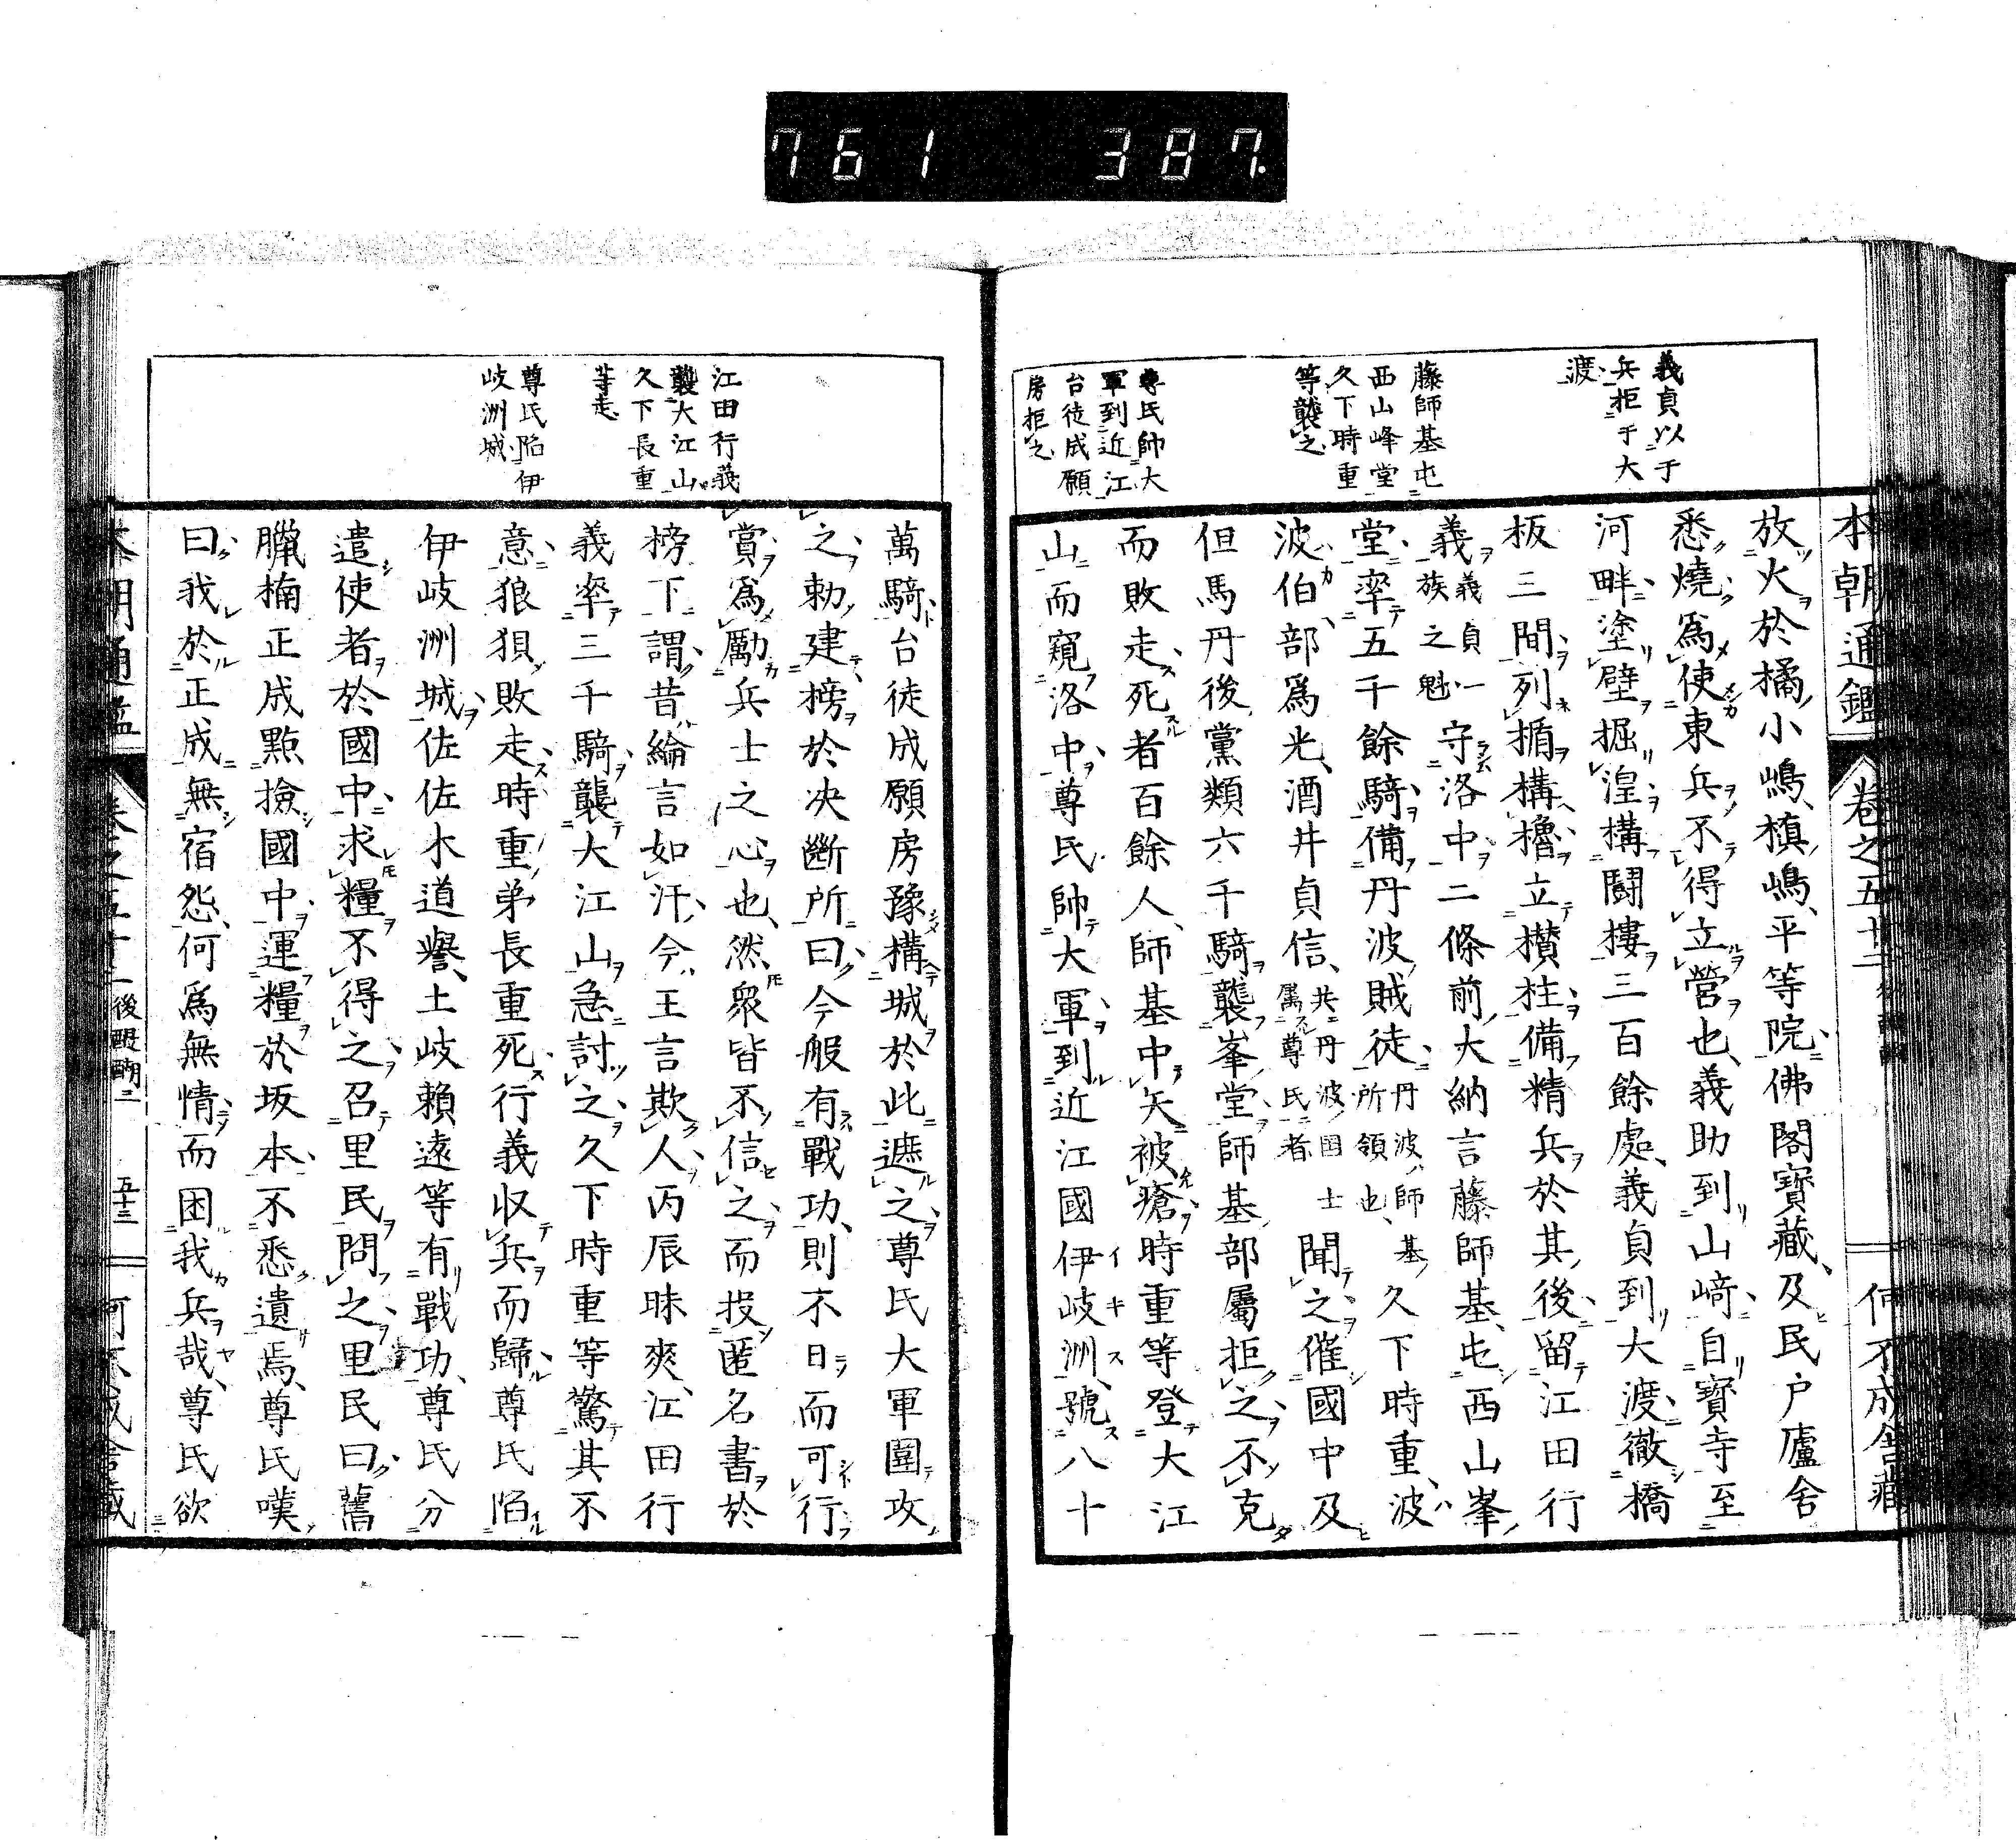 761 387.
本朝通鑑 卷之五十二 何不成舍藏
義貞以于
兵拒于大
渡
藤師基屯
西山峰堂
久下時重
等襲之
尊氏帥大
軍到近江
台徒成願
房拒之
放火於橘小嶋槙嶋平等院佛閣寶藏及民戶廬舍
悉燒爲使東兵不得立營也義助到山﨑自寶寺至
河畔塗壁掘湟構鬪樓三百餘處義貞到大渡徹橋
板三間列楯構櫓立櫕柱備精兵於其後留江田行
義義貞一族之魁守洛中二條前大納言藤師基屯西山峯
堂率五千餘騎備丹波賊徒丹波師基所領也久下時重波
波伯部爲光酒井貞信共丹波國士屬尊氏者聞之催國中及
但馬丹後黨類六千騎襲峯堂師基部屬拒之不克
而敗走死者百餘人師基中矢被瘡時重等登大江
山而窺洛中尊氏帥大軍到近江國伊岐洲號八十
江田行義
襲大江山
久下長重
等走
尊氏陷伊
岐洲城
萬騎台徒成願房豫構城於此遮之尊氏大軍圍攻
之勅建榜於决斷所曰今般有戰功則不日而可行
賞爲勵兵士之心也然衆皆不信之而投匿名書於
榜下謂昔綸言如汗今王言欺人丙辰昧爽江田行
義率三千騎襲大江山急討之久下時重等驚其不
意狼狽敗走時重弟長重死行義収兵而歸尊氏陷
伊岐洲城佐佐木道譽土岐賴遠等有戰功尊氏分
遣使者於國中求糧不得之召里民問之里民曰舊
臘楠正成點撿國中運糧於坂本不悉遺焉尊氏嘆
曰我於正成無宿怨何爲無情而困我兵哉尊氏欲
後醍醐二 五十三